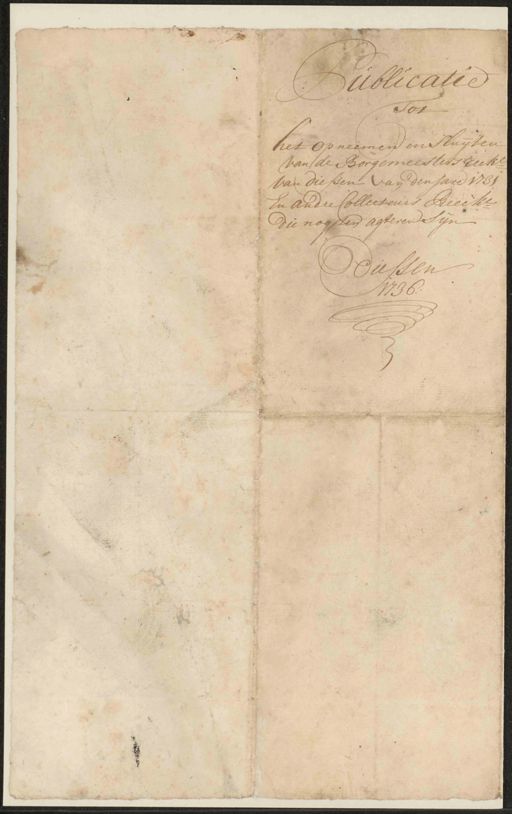 Publicatie
Tot
het opneemen en Sluijten
van de Borgemeesters Reek:
van diessen van den Jare 1731
En andre Collecteurs Reeck:
die nog ten agteren Sijn
Diessen
1736: